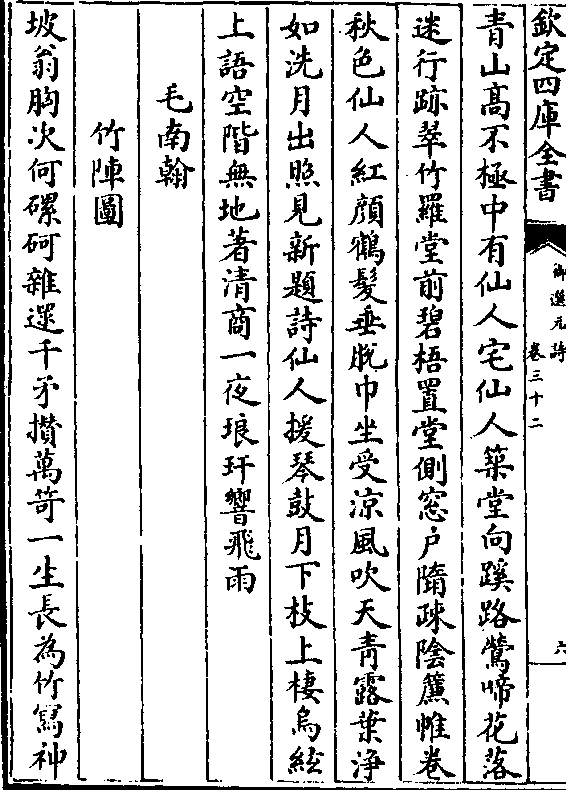 欽定四庫全書
御選元詩
卷三十二
六
青山高不極中有仙人宅仙人築堂向蹊路鶯啼花落
迷行跡翠竹羅堂前碧梧置堂側窓户隋疎陰簾帷卷
秋色仙人紅顔鶴髪垂脱巾坐受涼風吹天青露葉浄
如洗月出照見新題詩仙人援琴鼓月下枝上棲烏絃
上語空階無地著清商一夜琅玕響飛雨
毛南翰
竹陣圖
坡翁胸次何磥砢雜遝千矛攅萬笴一生長為竹寫神